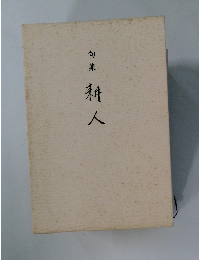 句集
耕人